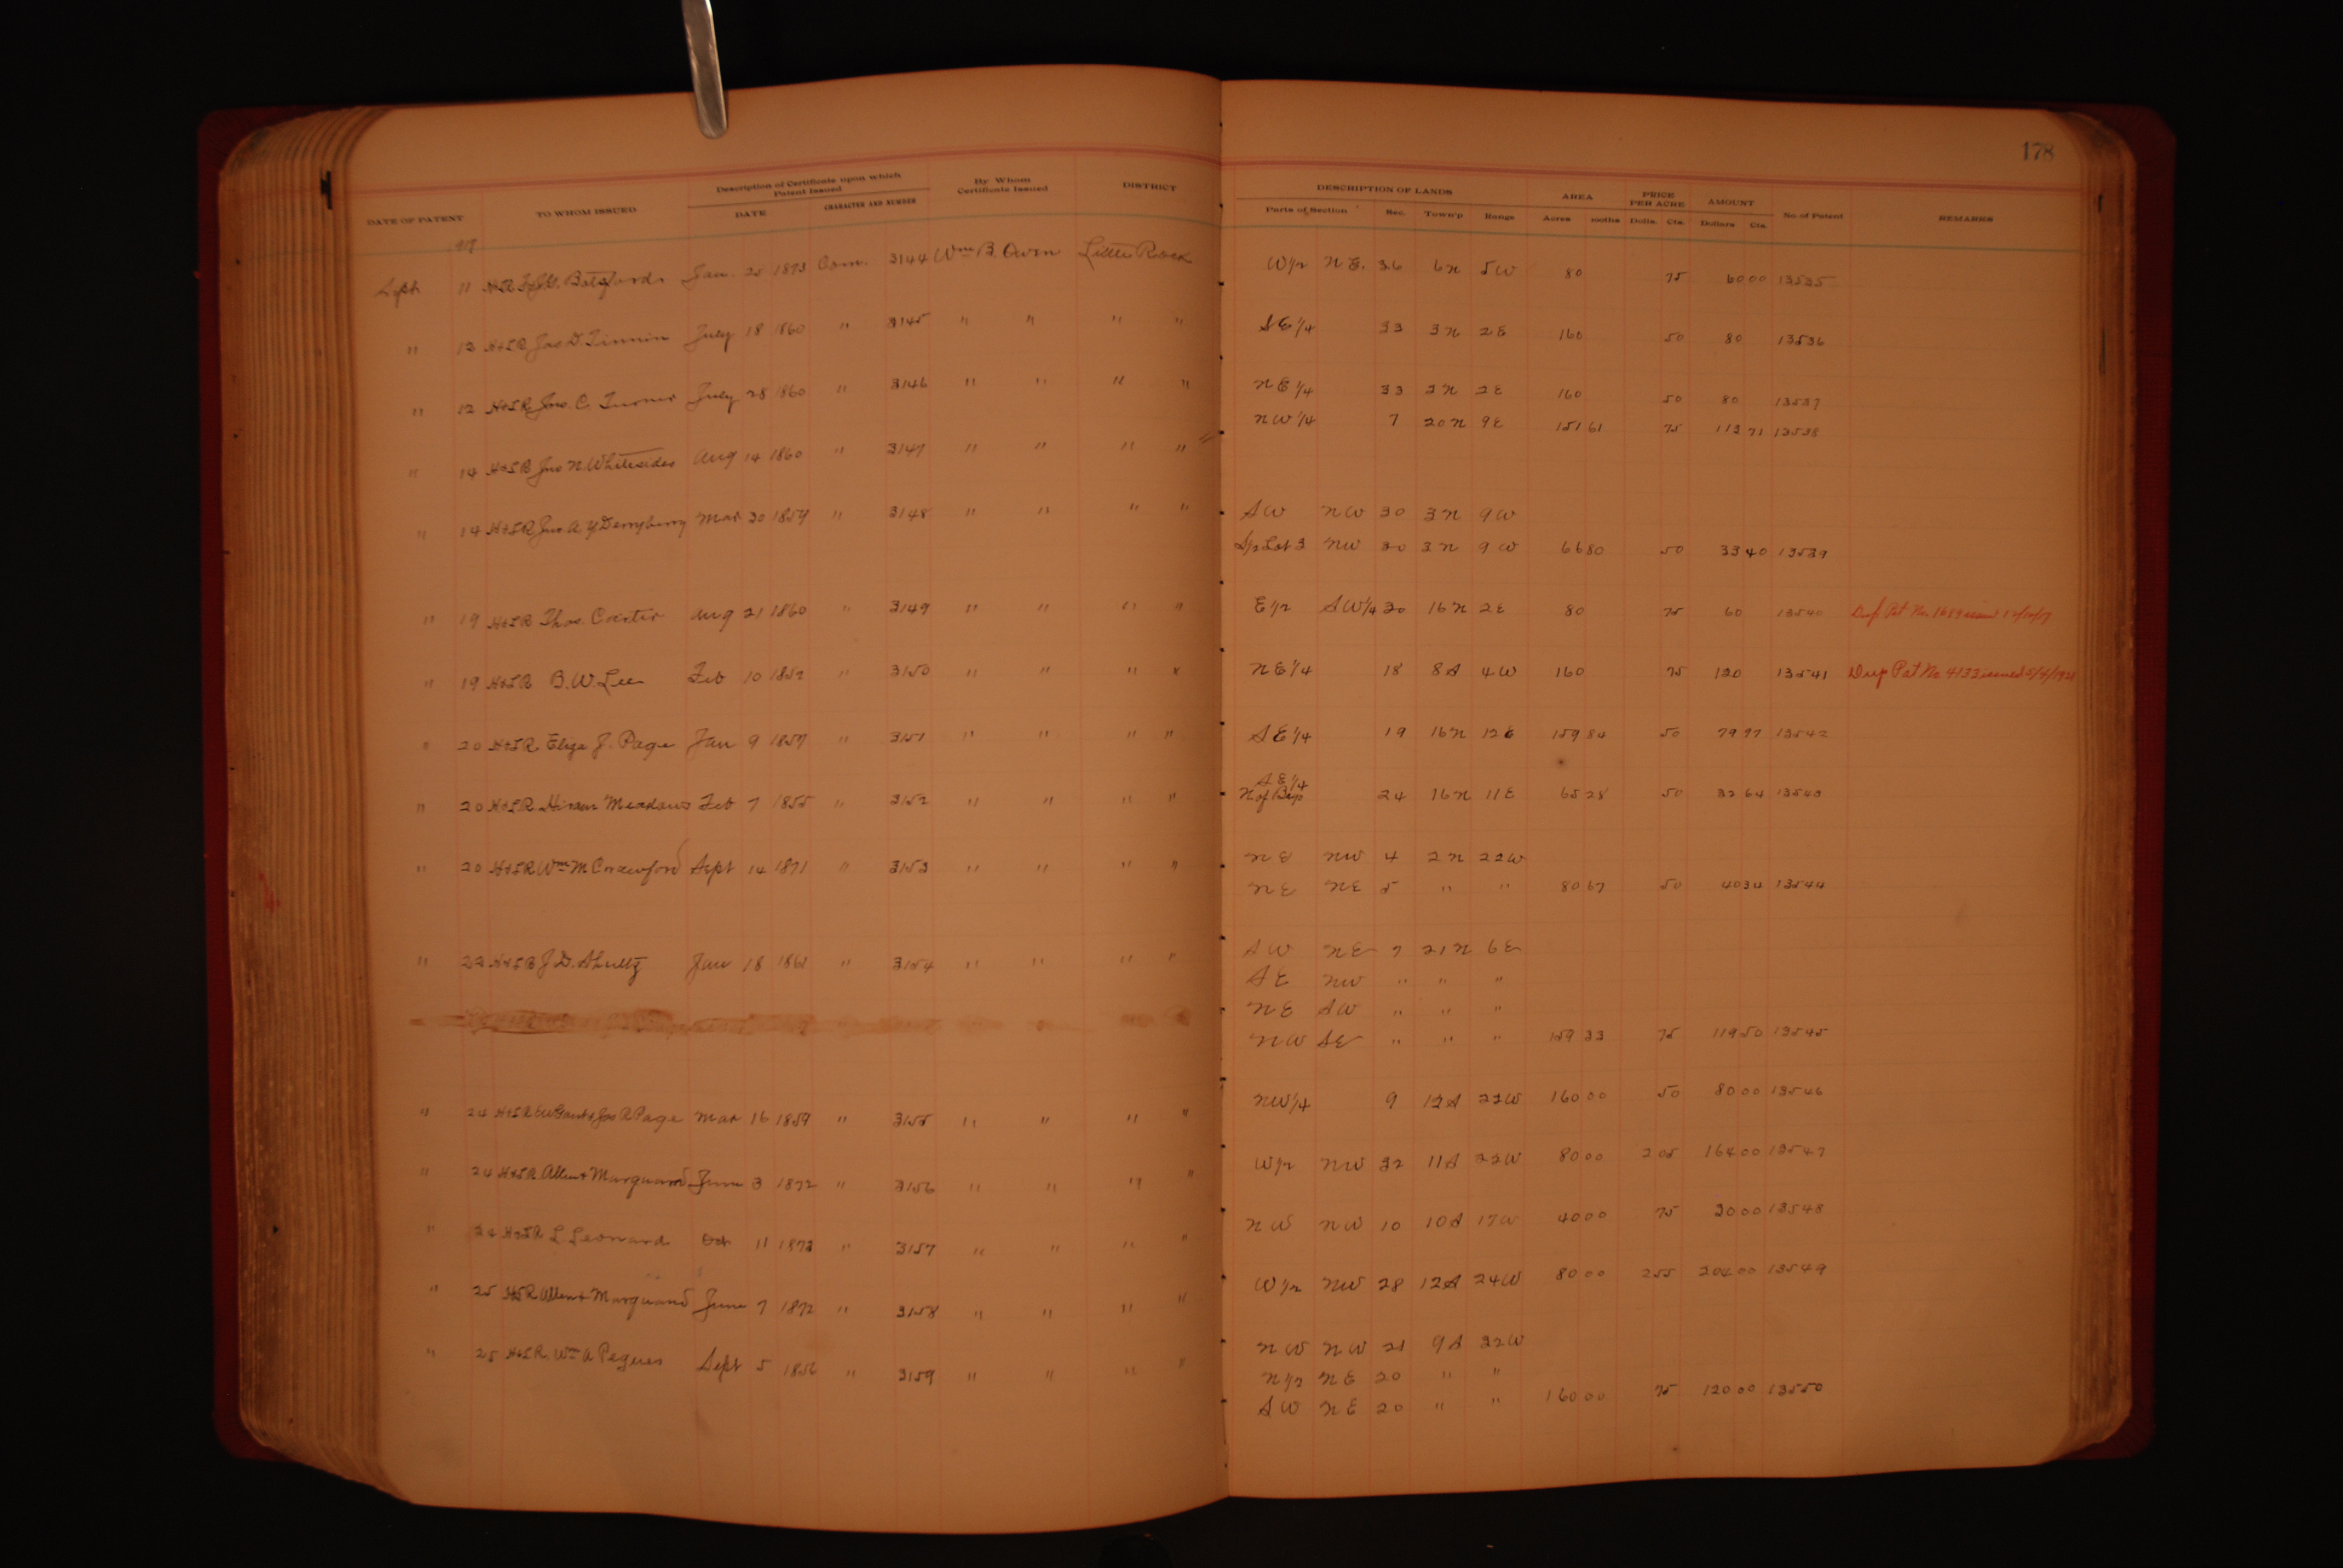 178
DATE OF PATENT TO WHOM ISSUED Description of Certificate upon which Patent Issued DATE CHARACTER AND NUMBER By Whom Certificate Issued DISTRICT DESCRIPTION OF LANDS Parts of Section Sec. Town'p Range AREA Acres 100ths PRICE PER ACRE Dolls. Cts. AMOUNT Dollars Cts. No. of Patent REMARKS
Sept 11 H&LR Jan. 25 1873 Com. 3144 Wm B. Owen Little Rock W½ NE. 36 6N 5W 80 75 60 00 13535
" 12 H&LR Jas D. Tinnin July 18 1860 " 3145 " " " " SE¼ 33 3N 2E 160 50 80 13536
" 12 H&LR Jno. C. Turner July 28 1860 " 3146 " " " " NE¼ 33 2N 2E 160 50 80 13537
" 14 H&LR Jno N. Whitesides Aug 14 1860 " 3147 " " " " NW¼ 7 20N 9E 151 61 75 113 71 13538
" 14 H&LR Jno A. Y. Derryberry Mar 30 1859 " 3148 " " " " SW NW 30 3N 9W
S½ Lot 3 NW 30 3N 9W 66 80 50 33 40 13539
" 19 H&LR Thos. Carter Aug 21 1860 " 3149 " " " " E½ SW¼ 30 16N 2E 80 75 60 13540 Dup Pat No. 1689 issued 12/10/17
" 19 H&LR B. W. Lee Feb 10 1852 " 3150 " " " " NE¼ 18 8S 4W 160 75 120 13541 Dup Pat No 4133 issued 5/4/1921
" 20 H&LR Eliza J. Page Jan 9 1857 " 3151 " " " " SE¼ 19 16N 12E 159 84 50 79 97 13542
" 20 H&LR Hiram Meadows Feb 7 1855 " 3152 " " " " SE¼ N of Bayo 24 16N 11E 65 28 50 32 64 13543
" 20 H&LR Wm M Crawford Sept 14 1871 " 3153 " " " " NE NW 4 2N 22W
NE NE 5 " " 80 67 50 40 34 13544
" 22 H&LR J. D. Shultz Jan 18 1861 " 3154 " " " " SW NE 7 21N 6E
SE NW " " "
NE SW " " "
NW SE " " " 159 33 75 119 50 13545
" 24 H&LR Jas R Page Mar 16 1859 " 3155 " " " " NW¼ 9 12S 22W 160 00 50 80 00 13546
" 24 H&LR Allen & Marquand June 3 1872 " 3156 " " " " W½ NW 32 11S 22W 80 00 2 05 164 00 13547
" 24 H&LR L Leonard Oct 11 1873 " 3157 " " " " NW NW 10 10S 17W 40 00 75 30 00 13548
" 25 H&LR Allen & Marquand June 7 1872 " 3158 " " " " W½ NW 28 12S 24W 80 00 2 55 204 00 13549
" 25 H&LR. Wm A Pegues Sept 5 1856 " 3159 " " " " NW NW 21 9S 32W
N½ NE 20 " "
SW NE 20 " " 160 00 75 120 00 13550